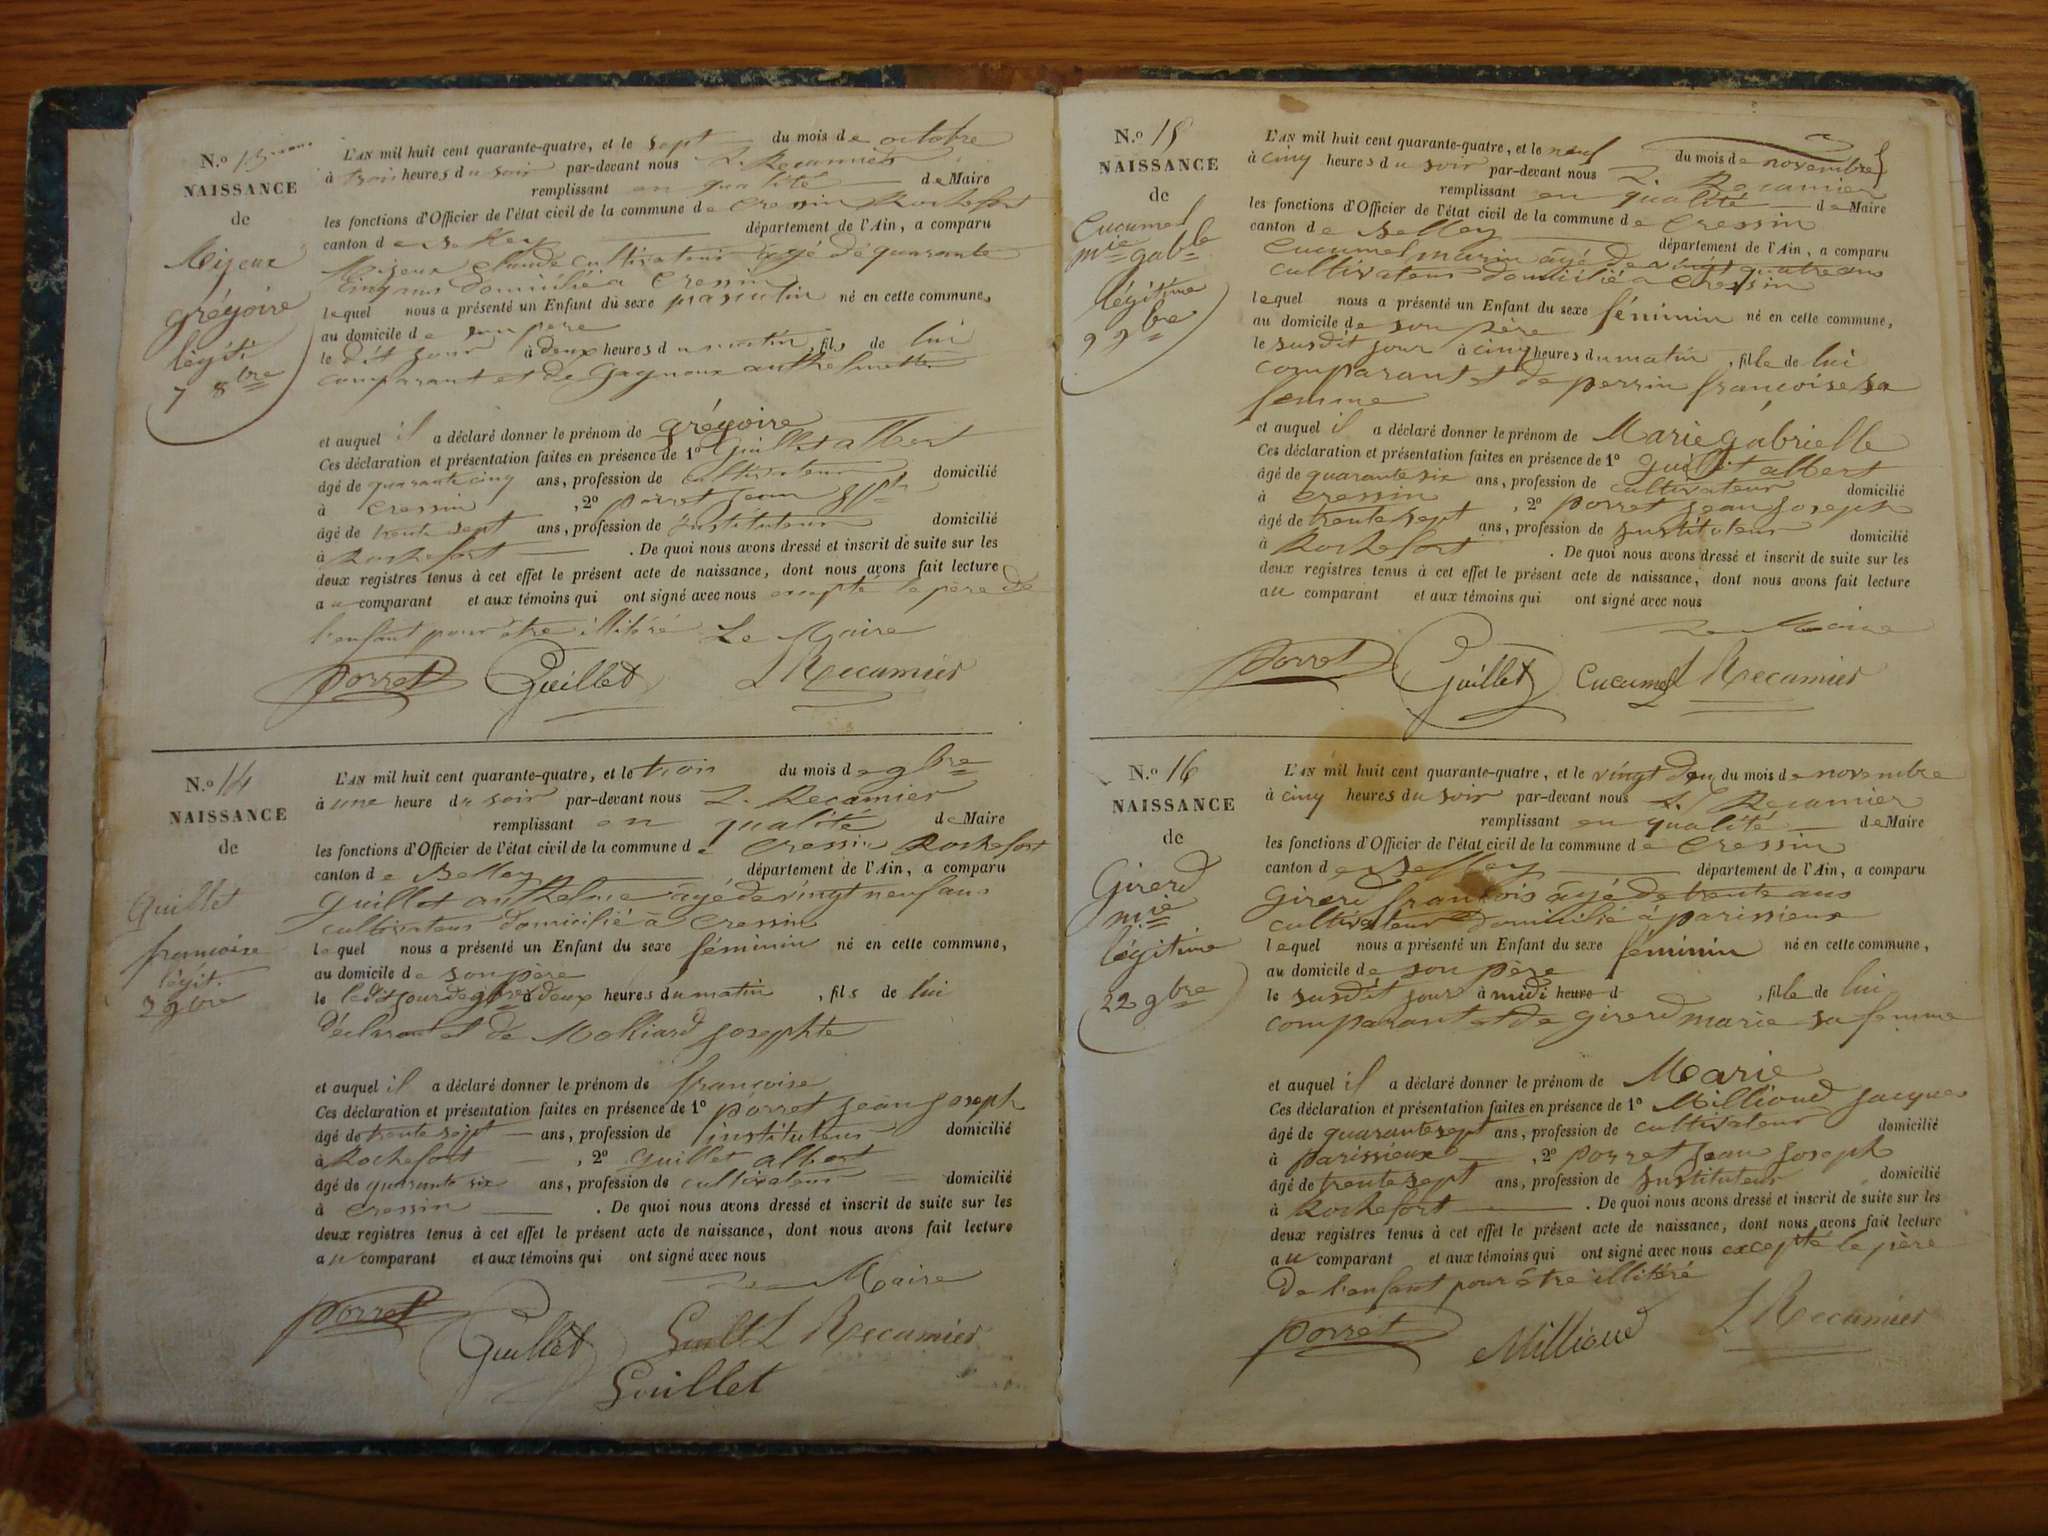 N.o 13
NAISSANCE
de
Mijeux
grégoire
légiti
7 8bre
L'AN mil huit cent quarante-quatre, et le sept du mois de octobre
à trois heures du soir par-devant nous L. Recamier
remplissant en qualité de Maire
les fonctions d'Officier de l'état civil de la commune de Cressin Rochefort
canton de Belley département de l'Ain, a comparu
Mijeux claude cultivateur âgé de quarante
cinq ans domicilié à Cressin
lequel nous a présenté un Enfant du sexe masculin né en cette commune,
au domicile de son père
le dit jour à deux heures du matin, fils de lui
comparant et de Gagneux anthelmette
et auquel il a déclaré donner le prénom de grégoire
Ces déclaration et présentation faites en présence de 1o Guillet albert
âgé de quarante cinq ans, profession de cultivateur domicilié
à Cressin, 2o porret jean jph
âgé de trente sept ans, profession de instituteur domicilié
à Rochefort. De quoi nous avons dressé et inscrit de suite sur les
deux registres tenus à cet effet le présent acte de naissance, dont nous avons fait lecture
au comparant et aux témoins qui ont signé avec nous excepté le père de
l'enfant pour être illitéré Le Maire
porret Guillet L Recamier
N.o 14
NAISSANCE
de
Guillet
françoise
légit.
3 9bre
L'AN mil huit cent quarante-quatre, et le trois du mois de 9bre
à une heure du soir par-devant nous L. Recamier
remplissant en qualité de Maire
les fonctions d'Officier de l'état civil de la commune de Cressin Rochefort
canton de Belley département de l'Ain, a comparu
Guillet anthelme âgé de vingt neuf ans
cultivateur domicilié à Cressin
lequel nous a présenté un Enfant du sexe féminin né en cette commune,
au domicile de son père
le ledit jour de 9bre à deux heures du matin, fils de lui
déclarant et de Molliard josephte
et auquel il a déclaré donner le prénom de françoise
Ces déclaration et présentation faites en présence de 1o porret jean joseph
âgé de trente sept ans, profession de instituteur domicilié
à Rochefort, 2o Guillet albert
âgé de quarante six ans, profession de cultivateur domicilié
à Cressin. De quoi nous avons dressé et inscrit de suite sur les
deux registres tenus à cet effet le présent acte de naissance, dont nous avons fait lecture
au comparant et aux témoins qui ont signé avec nous
Le Maire
porret Guillet Guillt L Recamier
Guillet
N.o 15
NAISSANCE
de
Cucumel
mie gable
légitime
9 9bre
L'AN mil huit cent quarante-quatre, et le neuf du mois de novembre
à cinq heures du soir par-devant nous L. Recamier
remplissant en qualité de Maire
les fonctions d'Officier de l'état civil de la commune de Cressin
canton de Belley département de l'Ain, a comparu
Cucumel marin âgé de vingt quatre ans
cultivateur domicilié à Cressin
lequel nous a présenté un Enfant du sexe féminin né en cette commune,
au domicile de son père
le susdit jour à cinq heures du matin, fille de lui
comparant et de perrin françoise sa
femme
et auquel il a déclaré donner le prénom de Marie gabrielle
Ces déclaration et présentation faites en présence de 1o guillet albert
âgé de quarante six ans, profession de cultivateur domicilié
à Cressin, 2o porret jean joseph
âgé de trente sept ans, profession de instituteur domicilié
à Rochefort. De quoi nous avons dressé et inscrit de suite sur les
deux registres tenus à cet effet le présent acte de naissance, dont nous avons fait lecture
au comparant et aux témoins qui ont signé avec nous
Le Maire
porret Guillet Cucumel L Recamier
N.o 16
NAISSANCE
de
Girerd
m.ie
légitime
22 9bre
L'AN mil huit cent quarante-quatre, et le vingt deux du mois de novembre
à cinq heures du soir par-devant nous L. Recamier
remplissant en qualité de Maire
les fonctions d'Officier de l'état civil de la commune de Cressin
canton de Belley département de l'Ain, a comparu
Girerd françois âgé de trente ans
cultivateur domicilié à parissieux
lequel nous a présenté un Enfant du sexe féminin né en cette commune,
au domicile de son père
le susdit jour à midi heure d, fille de lui
comparant et de girerd marie sa femme
et auquel il a déclaré donner le prénom de Marie
Ces déclaration et présentation faites en présence de 1o Milliond jacques
âgé de quarante sept ans, profession de cultivateur domicilié
à parissieux, 2o porret jean joseph
âgé de trente sept ans, profession de instituteur domicilié
à Rochefort. De quoi nous avons dressé et inscrit de suite sur les
deux registres tenus à cet effet le présent acte de naissance, dont nous avons fait lecture
au comparant et aux témoins qui ont signé avec nous excepté le père
de l'enfant pour être illitéré
porret Milliond L Recamier